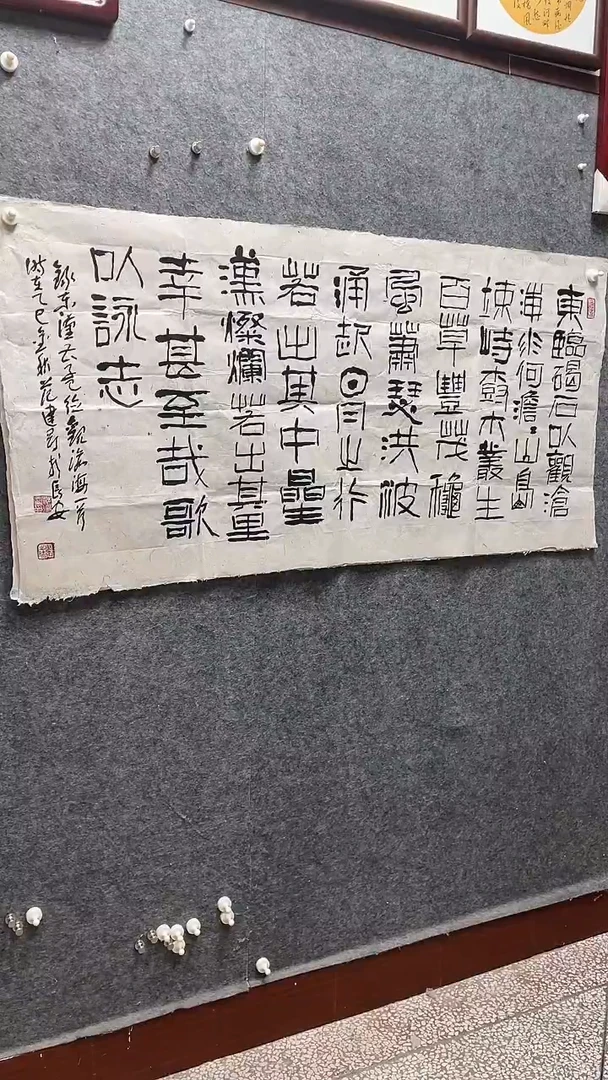 東臨碣石以觀滄
海水何澹〻山島
竦峙樹木叢生
百草豐茂穐
風蕭瑟洪波
涌起日月之行
若出其中星
漢燦爛若出其里
幸甚至哉歌
以詠志
錄東漢觀滄海一首
時在乙巳金秋范建於長安